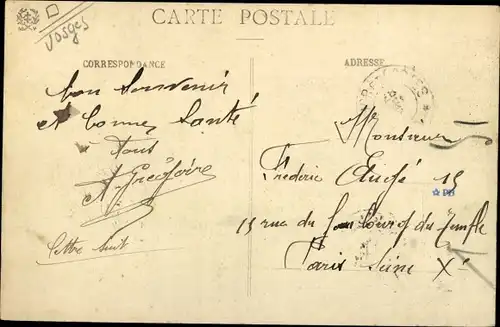 CARTE POSTALE
Vosges
CORRESPONDANCE
ADRESSE
bon Souvenir
et bonne Santé
à tous
A. Grégoire
lettre suit
Monsieur
Fréderic 15
15 rue du faubourg du Temple
Paris Seine Xe
PB